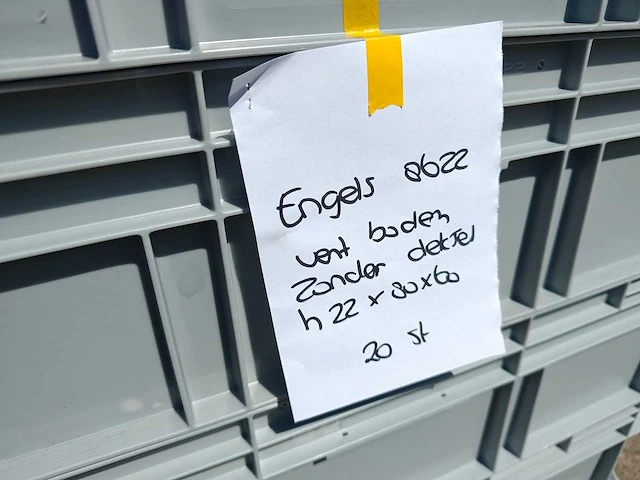 Engels 8622
vent bodem
Zonder deksel
h 22 x 80x60
20 st